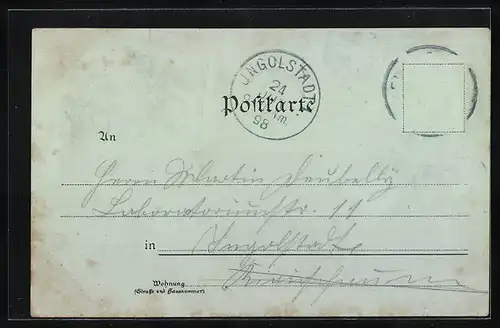 JNGOLSTADT
24
98
Postkarte
An
Herrn Martin
Laboratoriumstr. 11
in Ingolstadt
Wohnung
(Straße und Hausnummer)